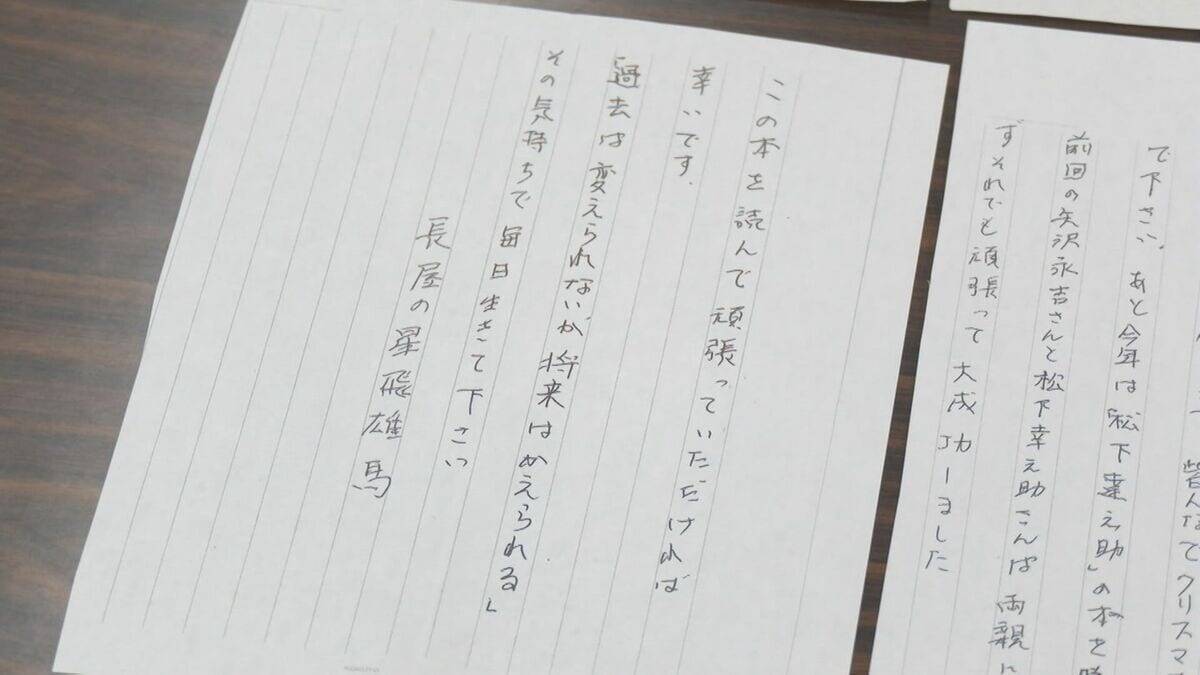 皆んなでクリスマ
で下さい。あと今年は「松下達之助」の本を
前回の矢沢永吉さんと松下幸之助さんは両親に
ずそれでも頑張って大成功しました
この本を読んで頑張っていただければ
幸いです。
「過去は変えられないが、将来はかえられる」
その気持ちで毎日生きて下さい
長屋の星飛雄馬